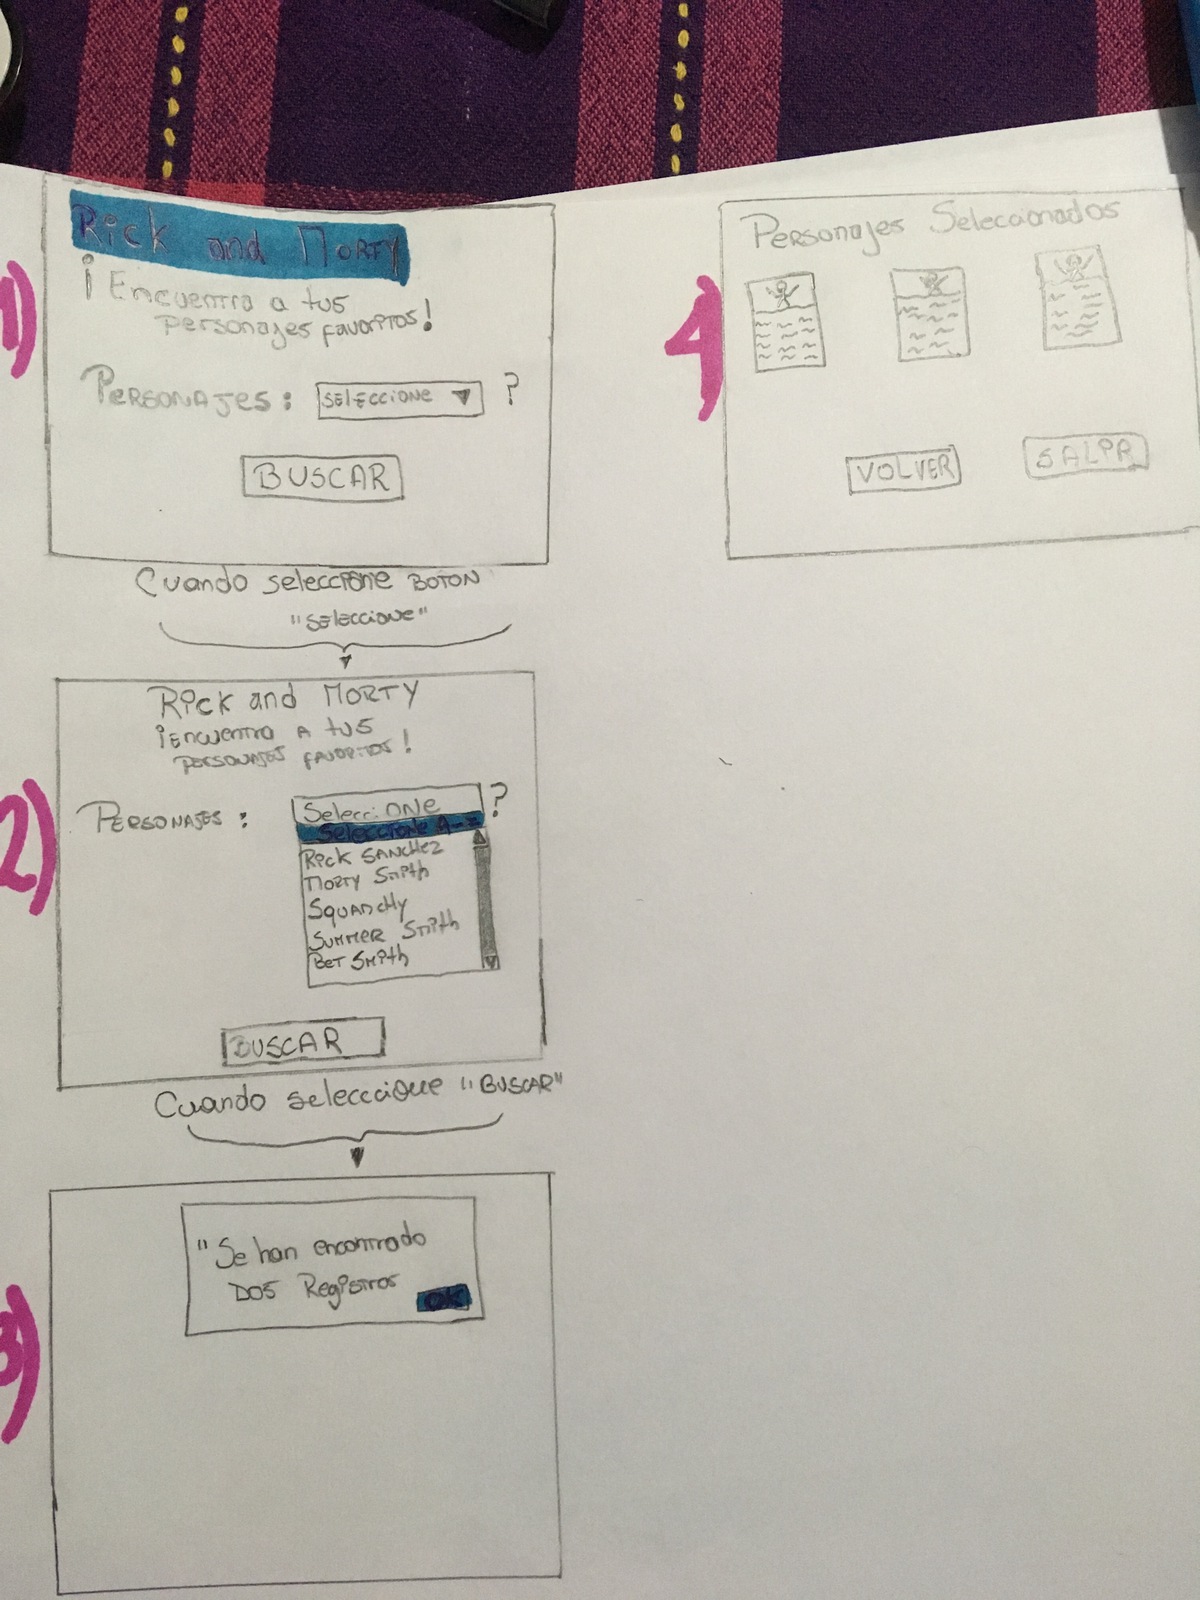 1)
Rick and MORTY
¡Encuentra a tus
Personajes favoritos!
PERSONAJES: SELECCIONE ▼ ?
BUSCAR
Cuando seleccione BOTON
"SELECCIONE"
2)
Rick and MORTY
¡ENCUENTRA A tus
PERSONAJES FAVORITOS!
PERSONAJES: SelecciONE ?
Seleccione A-z
Rick SANCHEZ
MORTY Smith
SQUANCHY
SUMMER Smith
BET Smith
BUSCAR
Cuando selecccique "BUSCAR"
3)
"Se han encontrado
DOS Registros
OK
4)
Personajes Seleccionados
VOLVER SALIR